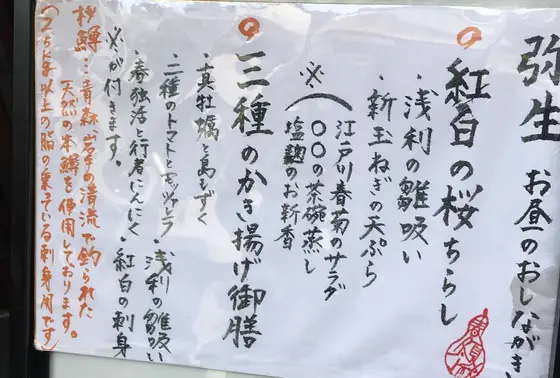 弥生 お昼のおしながき
○紅白の桜ちらし
・浅利の雛吸い
・新玉ねぎの天ぷら
江戸川春菊のサラダ
※ 〇〇の茶碗蒸し
塩麹のお新香
○三種のかき揚げ御膳
・真牡蠣と島もずく
・二種のトマトとモッツァレラ ・浅利の雛吸い
・春独活と行者にんにく ・紅白の刺身
※が付きます。
桜鱒…青森、岩手の清流で釣られた
天然の本鱒を使用しております。
(2.5kg以上の脂の乗っている刺身用です)